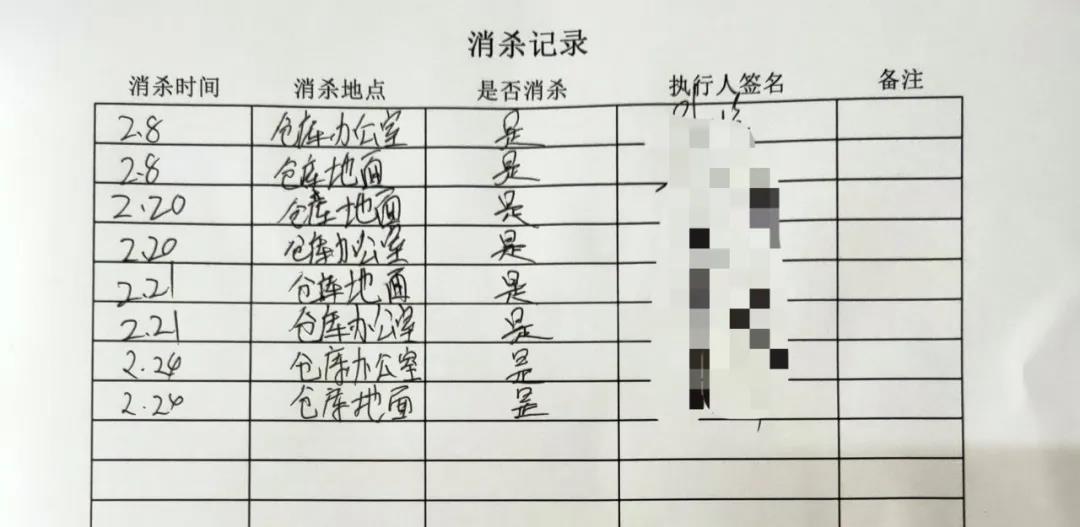 消杀记录
消杀时间 消杀地点 是否消杀 执行人签名 备注
2.8 仓库办公室 是
2.8 仓库地面 是
2.20 仓库地面 是
2.20 仓库办公室 是
2.21 仓库地面 是
2.21 仓库办公室 是
2.24 仓库办公室 是
2.24 仓库地面 是